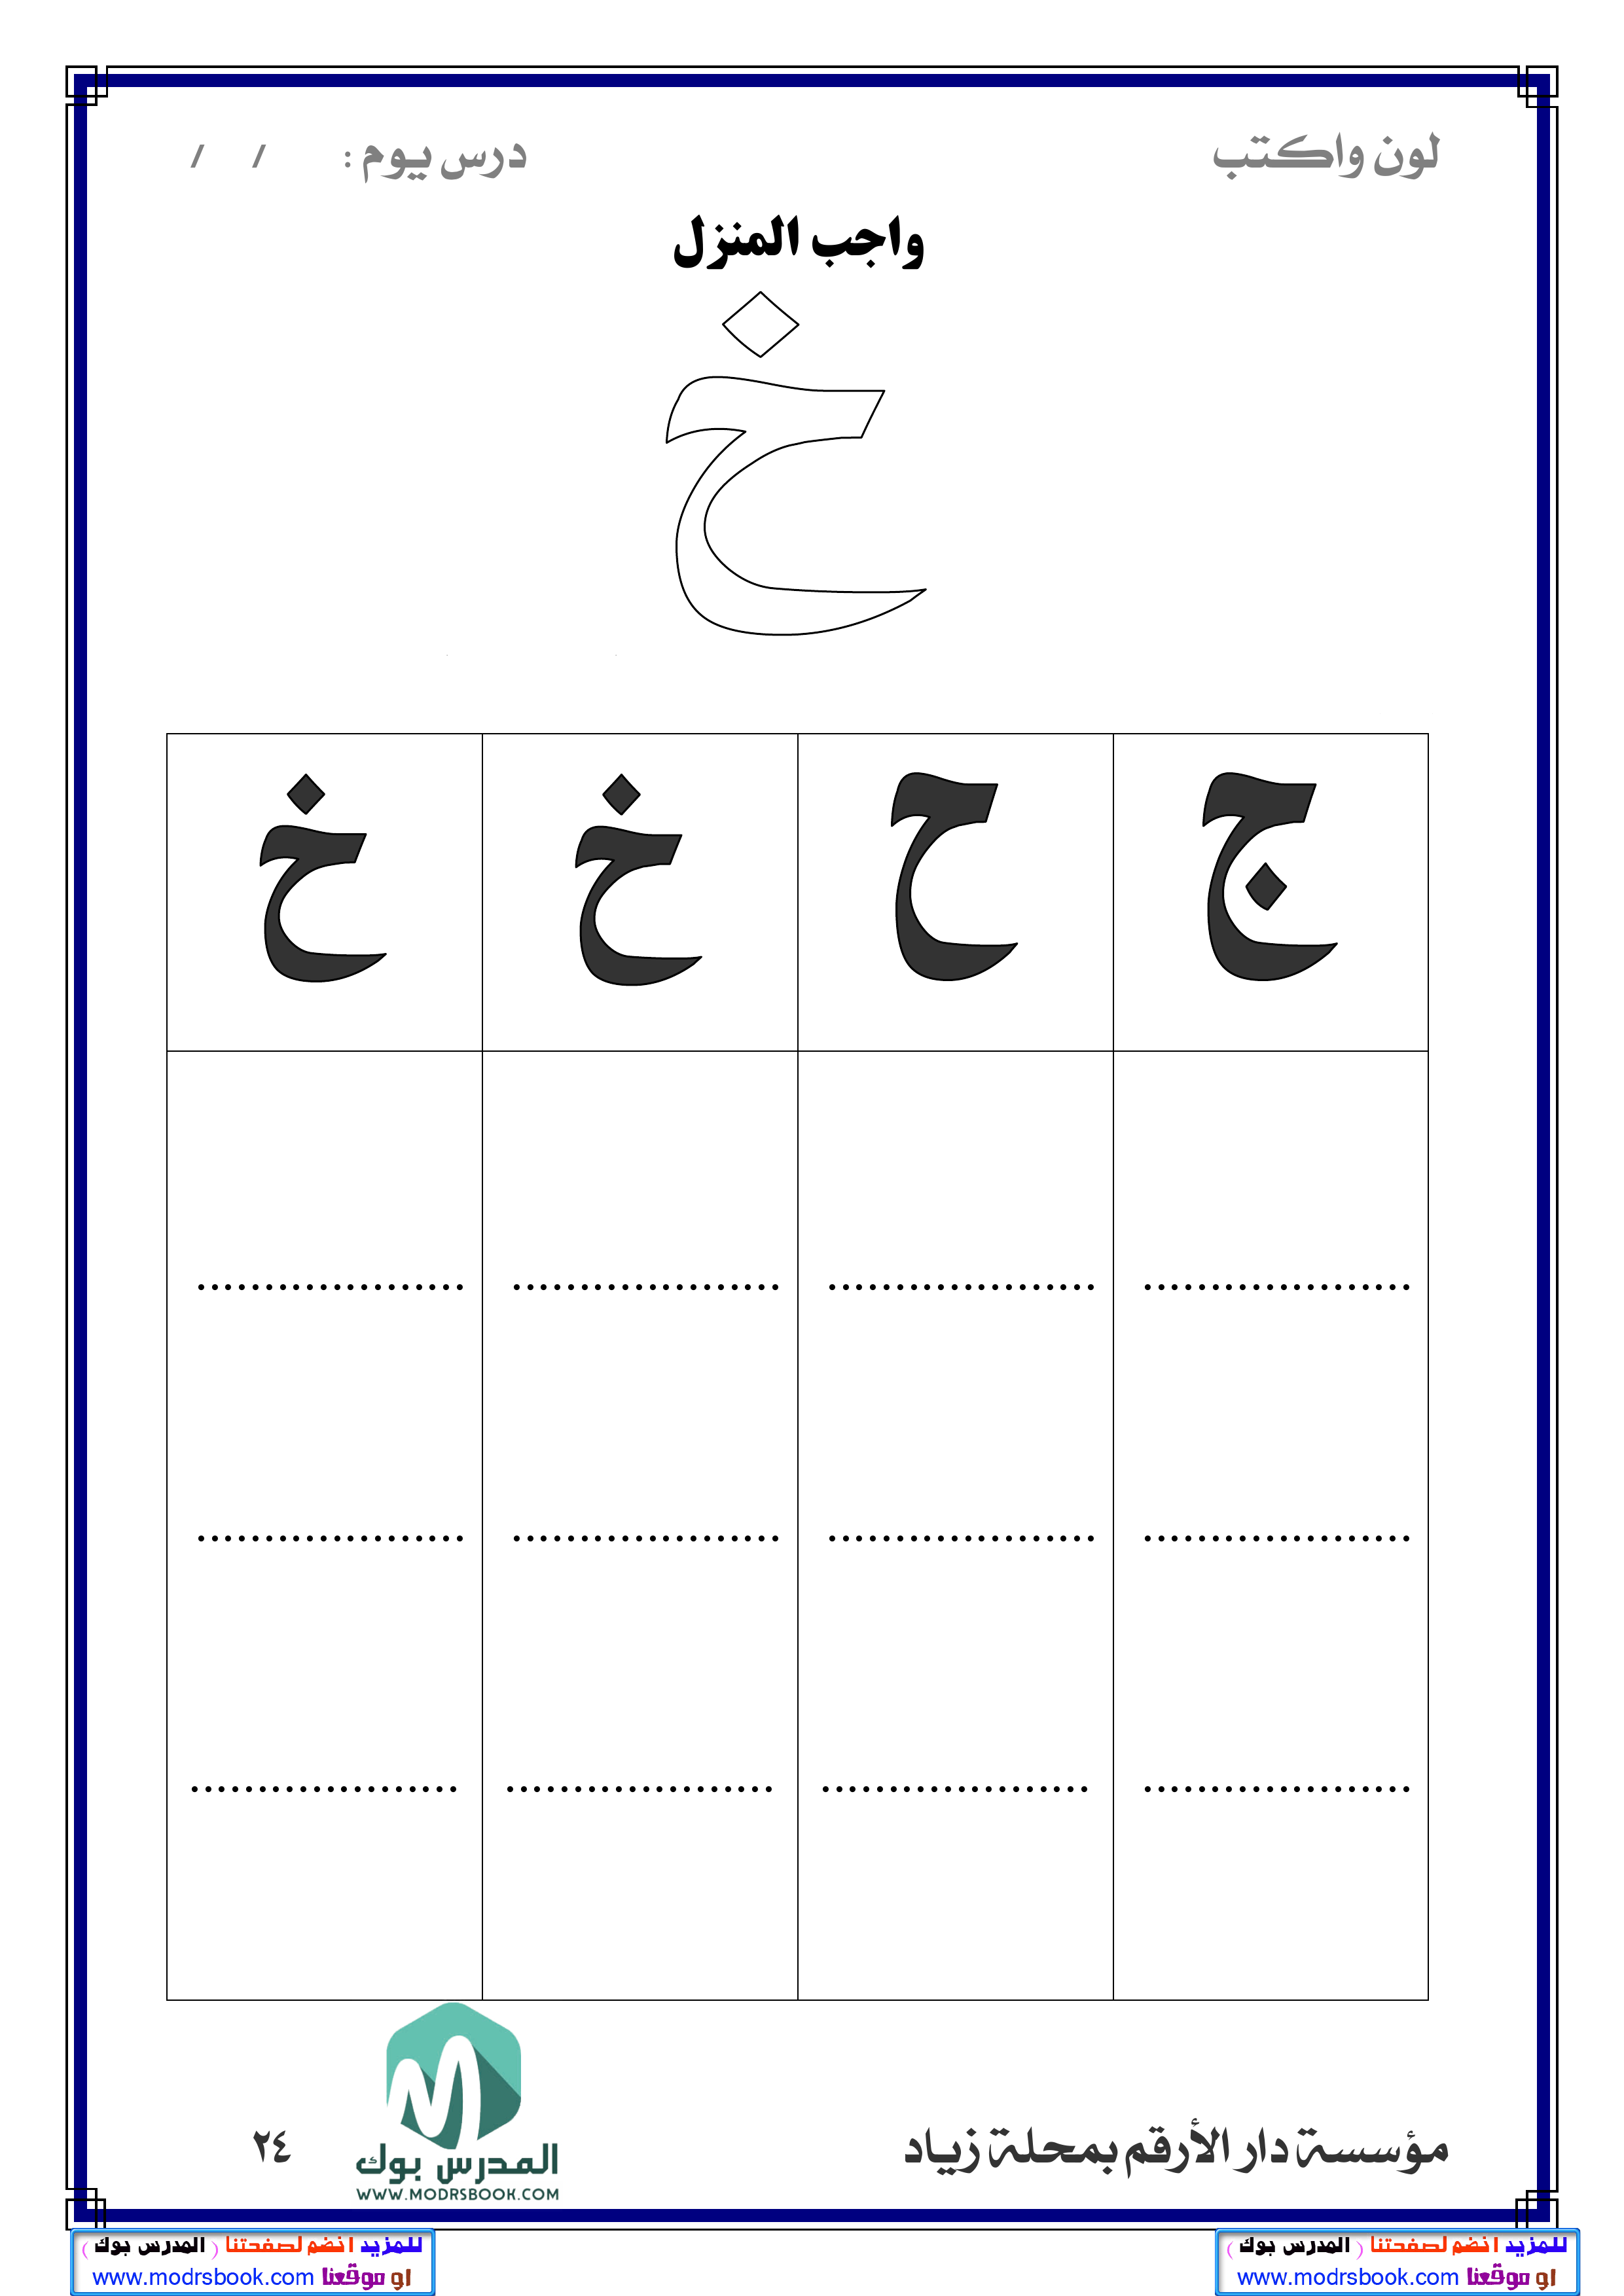 لون واكتب درس يوم : / /
واجب المنزل
خ
ج ح خ خ
................... ................... ................... ...................
................... ................... ................... ...................
................... ................... ................... ...................
مؤسسة دار الأرقم بمحلة زياد ٢٤
المدرس بوك
WWW.MODRSBOOK.COM
للمزيد انضم لصفحتنا ( المدرس بوك )
او موقعنا www.modrsbook.com
للمزيد انضم لصفحتنا ( المدرس بوك )
او موقعنا www.modrsbook.com